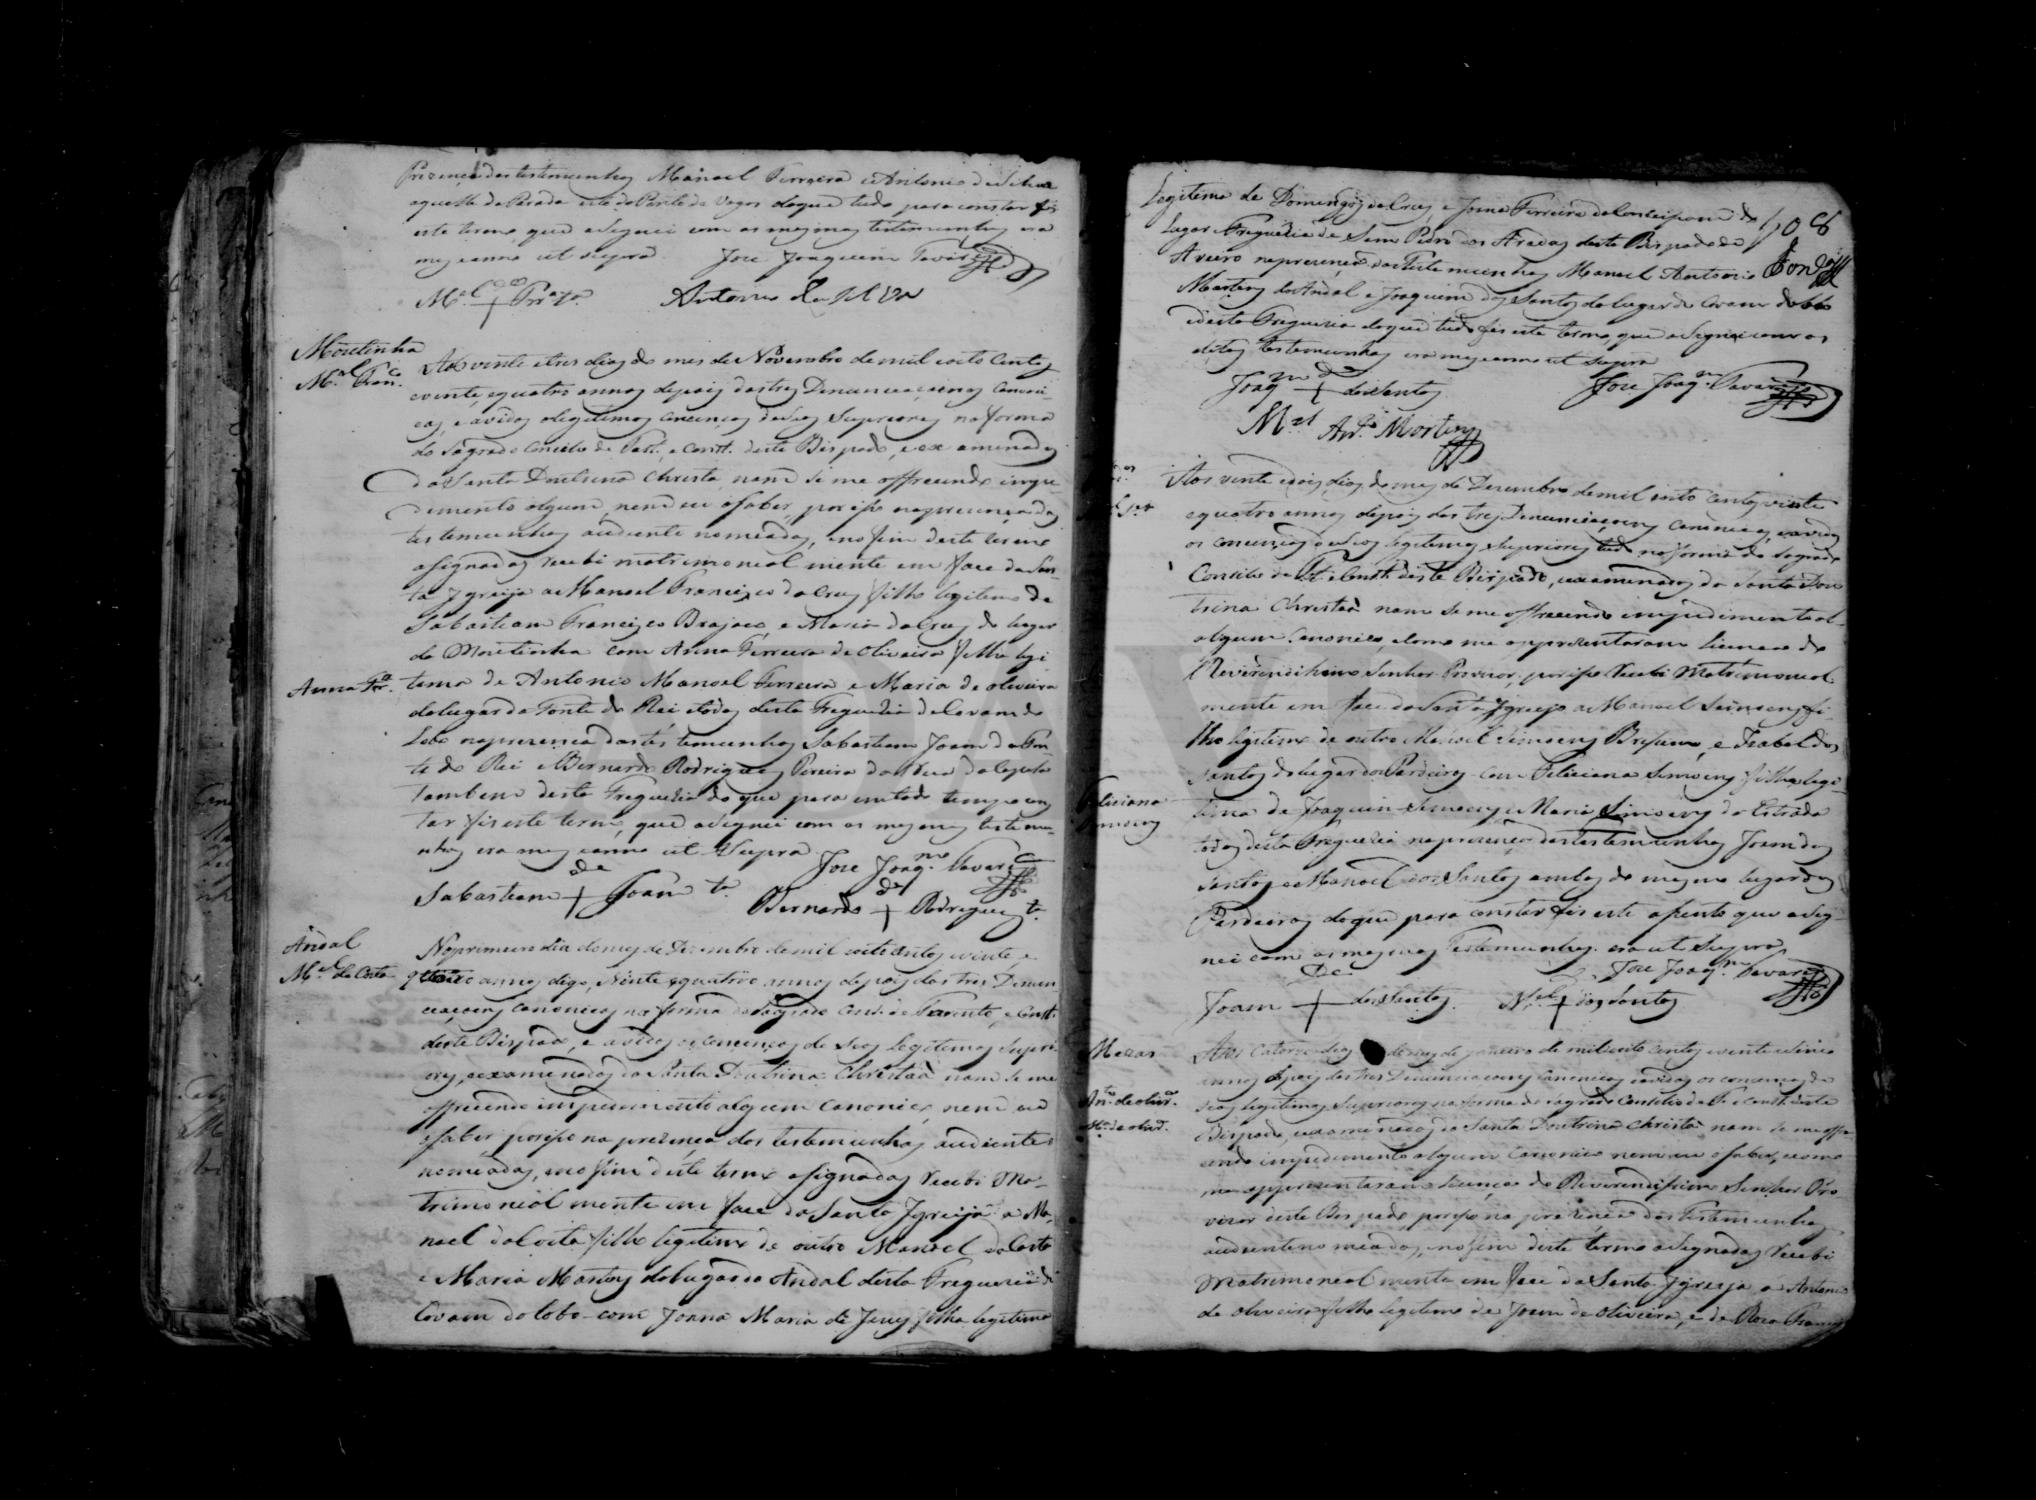 Prezença das testemunhas Manoel Ferreira e Antonio da Silva
aquelle da Parada este da Ponte de Vagos do que tudo para constar fis
este termo que asignei com as mesmas testemunhas era
mes e anno ut supra. Joze Joaquim Tavares
M.el + Frr.a
Antonio da Silva
Moitinha
M.el Fran.co
Aos vinte e tres dias do mes de Novembro de mil oito centos
e vinte, e quatro annos depois das tres Denunciaçoens Canoni-
cas, e avidos os legitimos concenços de seos Superiores na forma
do Sagrado Concilio de e Const. deste Bispado, e examinados
da Santa Doutrina Christa, nam se me offrecendo impe-
dimento algum, nem eu o saber, por isso na prezença das
testemunhas ao diente nomeadas, e no fim deste termo
asignadas recebi matrimonial mente em face da San-
ta Igreija a Manoel Francisco da Cruz filho legitimo de
Sabastiam Francisco Brajaco, e Maria da Cruz do lugar
da Moitinha com Anna Ferreira de Oliveira filha legi
Anna Frr.a
tema de Antonio Manoel Ferreira e Maria de Oliveira
do lugar da Fonte do Rei e todos desta Freguezia de Covam do
Lobo na prezença das testemunhas Sabastiam Joam da Fon-
te do Rei e Bernardo Rodrigues Pereira da
tambem desta Freguezia do que para em todo tempo cons
tar fis este termo, que asignei com as mesmas testemu-
nhas era mes e anno ut Supra
Joze Joaq.m Tavares
Sabastiam + Joam t.a
Bernardo + Rodrigues t.a
Andal
M.el da Costa
No primeiro dia do mes de Dezembro de mil oito centos e vinte e
annos digo, vinte e quatro annos depois das tres Denun
ciaçoens canonicas na forma do Sagrado Conc. de Trento, e Const.
deste Bispado, e avidos os concenços de seos legitimos superi-
ores, e examinados da Santa Doutrina Christãa nam se me
offrecendo impedimento algum canonico, nem eu
o saber por isso na prezença das testemunhas ao diente
nomeadas, e no fim deste termo asignadas recebi Ma-
trimonial mente em face da Santa Igreija a Ma-
noel da Costa filho legitimo de outro Manoel da Costa
e Maria Martins do lugar do Andal desta Freguezia de
Covam do Lobo com Joana Maria de Jesus filha legitima
legitema de Domingos da Cruz, e Joana Ferreira da Conceipcam do
lugar e Freguezia de Sam Pedro das Aradas deste Bispado de
Aveiro na prezença das Testemunhas Manoel Antonio
Martins do Andal e Joaquim dos Santos do lugar de Covam do Lobo
desta Freguezia do que tudo fis este termo que asignei com as
ditas testemunhas era mes e anno ut supra
108
Joaq.m + dos Santos
Joze Joaq.m Tavares
M.el Ant.o Martins
Aos vinte e seis dias do mes de Dezembro de mil oito centos e vinte
e quatro annos depois das tres Denunciaçoens Canonicas, e avidos
os concenços de seos legitimos superiores tudo na forma do Sagrado
Concilio de e Const. deste Bispado, e examinados da Santa Dou
trina Christãa nam se me offrecendo impedimento al-
algum Canonico, e como me appresentaram licença do
Reverendissimo Senhor Provisor, por isso Recebi Matrimonial
mente em face da Santa Igreija a Manoel Simoens fi-
lho legitimo de outro Manoel Simoens e Izabel dos
Santos do lugar dos Pardeiros com Feliciana Simoens filha legi-
Feliciana
Simoens
tima de Joaquim Simoens e Maria Simoens da Estrada
todos desta Freguezia na prezença das testemunhas Joam dos
Santos e Manoel dos Santos ambos do mesmo lugar dos
Pardeiros do que para constar fis este asento que asig-
nei com as mesmas Testemunhas era ut supra
Joze Joaq.m Tavares
Joam + dos Santos
M.el + dos Santos
Mezas
Ant.o de Oliv.ra
Aos catorze dias do mes de Janeiro de mil oito centos e vinte e sinco
annos depois das tres Denunciaçoens Canonicas e avidos os concenços de
seos legitimos superiores na forma do sagrado Concilio de e Const. deste
Bispado, e examinados da Santa Doutrina Christã nam se me offre
cendo impedimento algum Canonico nem eu o saber, e como
me appresentaram licença do Reverendissimo Senhor Pro
vizor deste Bispado por isso na prezença das Testemunhas
ao diente nomeadas, e no fim deste termo asignadas Recebi
Matrimonial mente em face da Santa Igreija a Antonio
de Oliveira filho legitimo de Joam de Oliveira, e de Roza